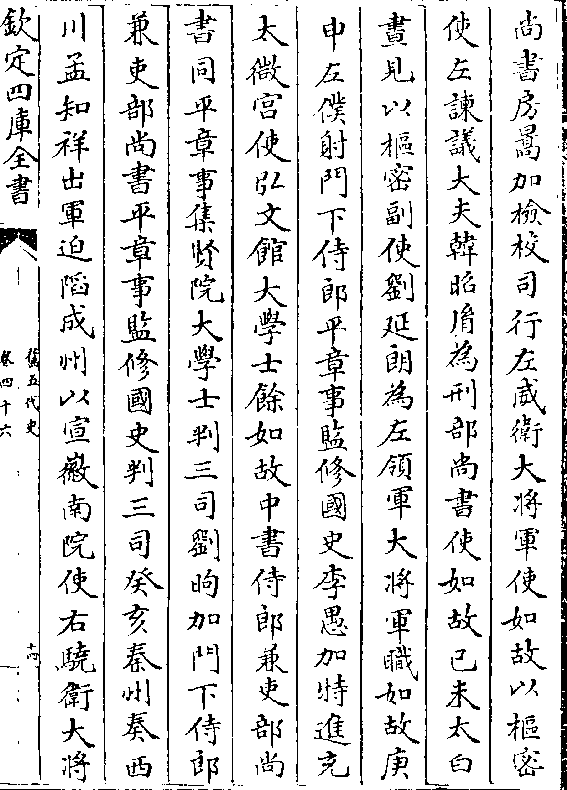 尚書房暠加檢校司行左威衛大將軍使如故以樞密
使左諫議大夫韓昭胤為刑部尚書使如故己未太白
晝見以樞密副使劉延朗為左領軍大將軍職如故庚
申左僕射門下侍郎平章事監修國史李愚加特進充
太微宫使弘文館大學士餘如故中書侍郎兼吏部尚
書同平章事集賢院大學士判三司劉昫加門下侍郎
兼吏部尚書平章事監修國史判三司癸亥秦州奏西
川孟知祥出軍迫陷成州以宣徽南院使右驍衛大將
欽定四庫全書
舊五代史
卷四十六
十四